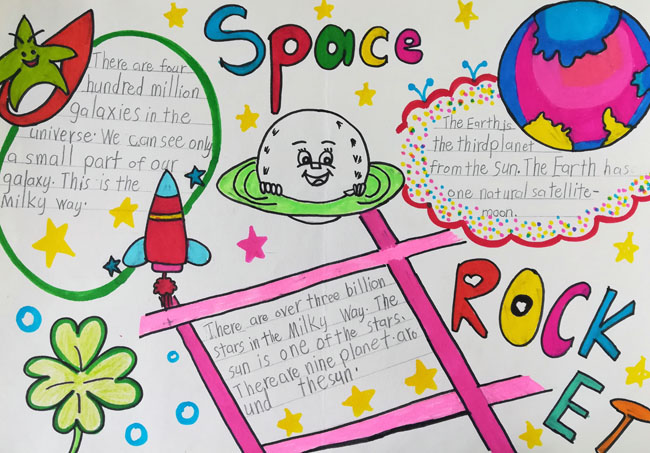 Space
There are four
hundred million
galaxies in the
universe. We can see only
a small part of our
galaxy. This is the
Milky way.
The Earth is
the third planet
from the sun. The Earth has
one natural satellite-
moon.
There are over three billion
stars in the Milky Way. The
sun is one of the stars.
There are nine planet aro
und the sun.
ROCK
ET